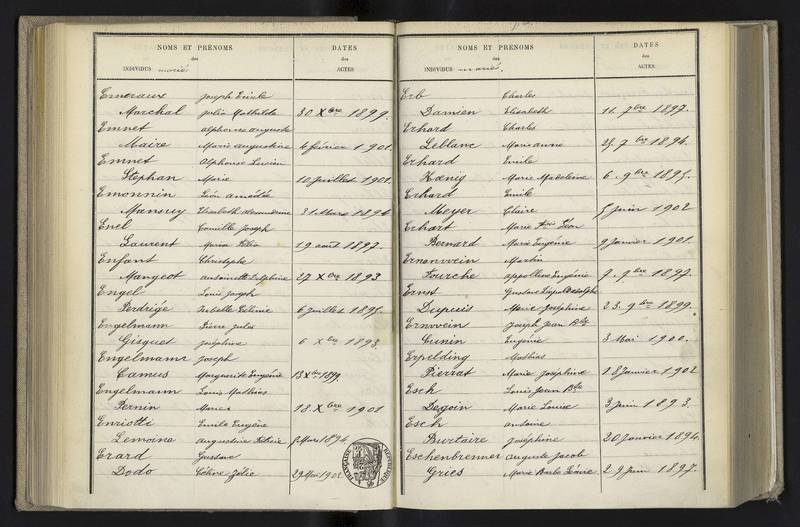 NOMS ET PRÉNOMS
des
INDIVIDUS mariés
DATES
des
ACTES
Emeraux Joseph Emile
Marchal Julie Mathilde 30 Xbre 1899.
Emnet alphonse auguste
Maire Marie augustine 4 février 1901.
Emnet Alphonse Lucien
Stephan Marie 10 juillet 1901.
Emonnin Léon amédée
Mansuy Elisabeth 31 Mars 1894
Enel Camille Joseph
Laurent Maria 19 août 1897.
Enfant Christophe
Mangeot antoinette Delphine 27 Xbre 1893.
Engel Louis Joseph
Perdrigé 6 juillet 1895.
Engelmann Pierre Jules
Gisquet Joséphine 6 Xbre 1893.
Engelmann Joseph
Camus Marguerite Eugénie 13 Xbre 1899.
Engelmann Louis Mathias
Pernin Maria 18 Xbre 1901
Enriotti Emile Eugène
Lemoine augustine Mars 1894
Erard Gustave
Dodo Céline Zélie 29 Mai 1902
NOMS ET PRÉNOMS
des
INDIVIDUS mariés.
DATES
des
ACTES
Erb Charles
Damien Elisabeth 11. 7bre 1897.
Erhard Charles
Leblanc Marie anne 25. 7bre 1894.
Erhard Emile
Kœnig Marie Madeleine 6. 9bre 1895.
Erhard Emile
Meyer Claire 5 juin 1902
Erhart Marie Léon
Bernard Marie Eugénie 9 janvier 1901.
Ernenwein Martin
Fourche appolline Eugénie 9. 9bre 1897.
Ernst Gustave Léopold adolphe
Dupuis Marie Joséphine 23. 9bre 1899.
Ernwein Joseph Jean Bte
Cunin Eugénie 3 Mai 1900.
Erpelding Mathias
Pierrat Marie Joséphine 18 Janvier 1902
Esch Louis Jean Bte
Degoin Marie Louise 3 juin 1893.
Esch antoine
Burtaire Joséphine 20 Janvier 1894.
Eschenbrenner auguste Jacob
Gries Marie Barbe 29 juin 1897.